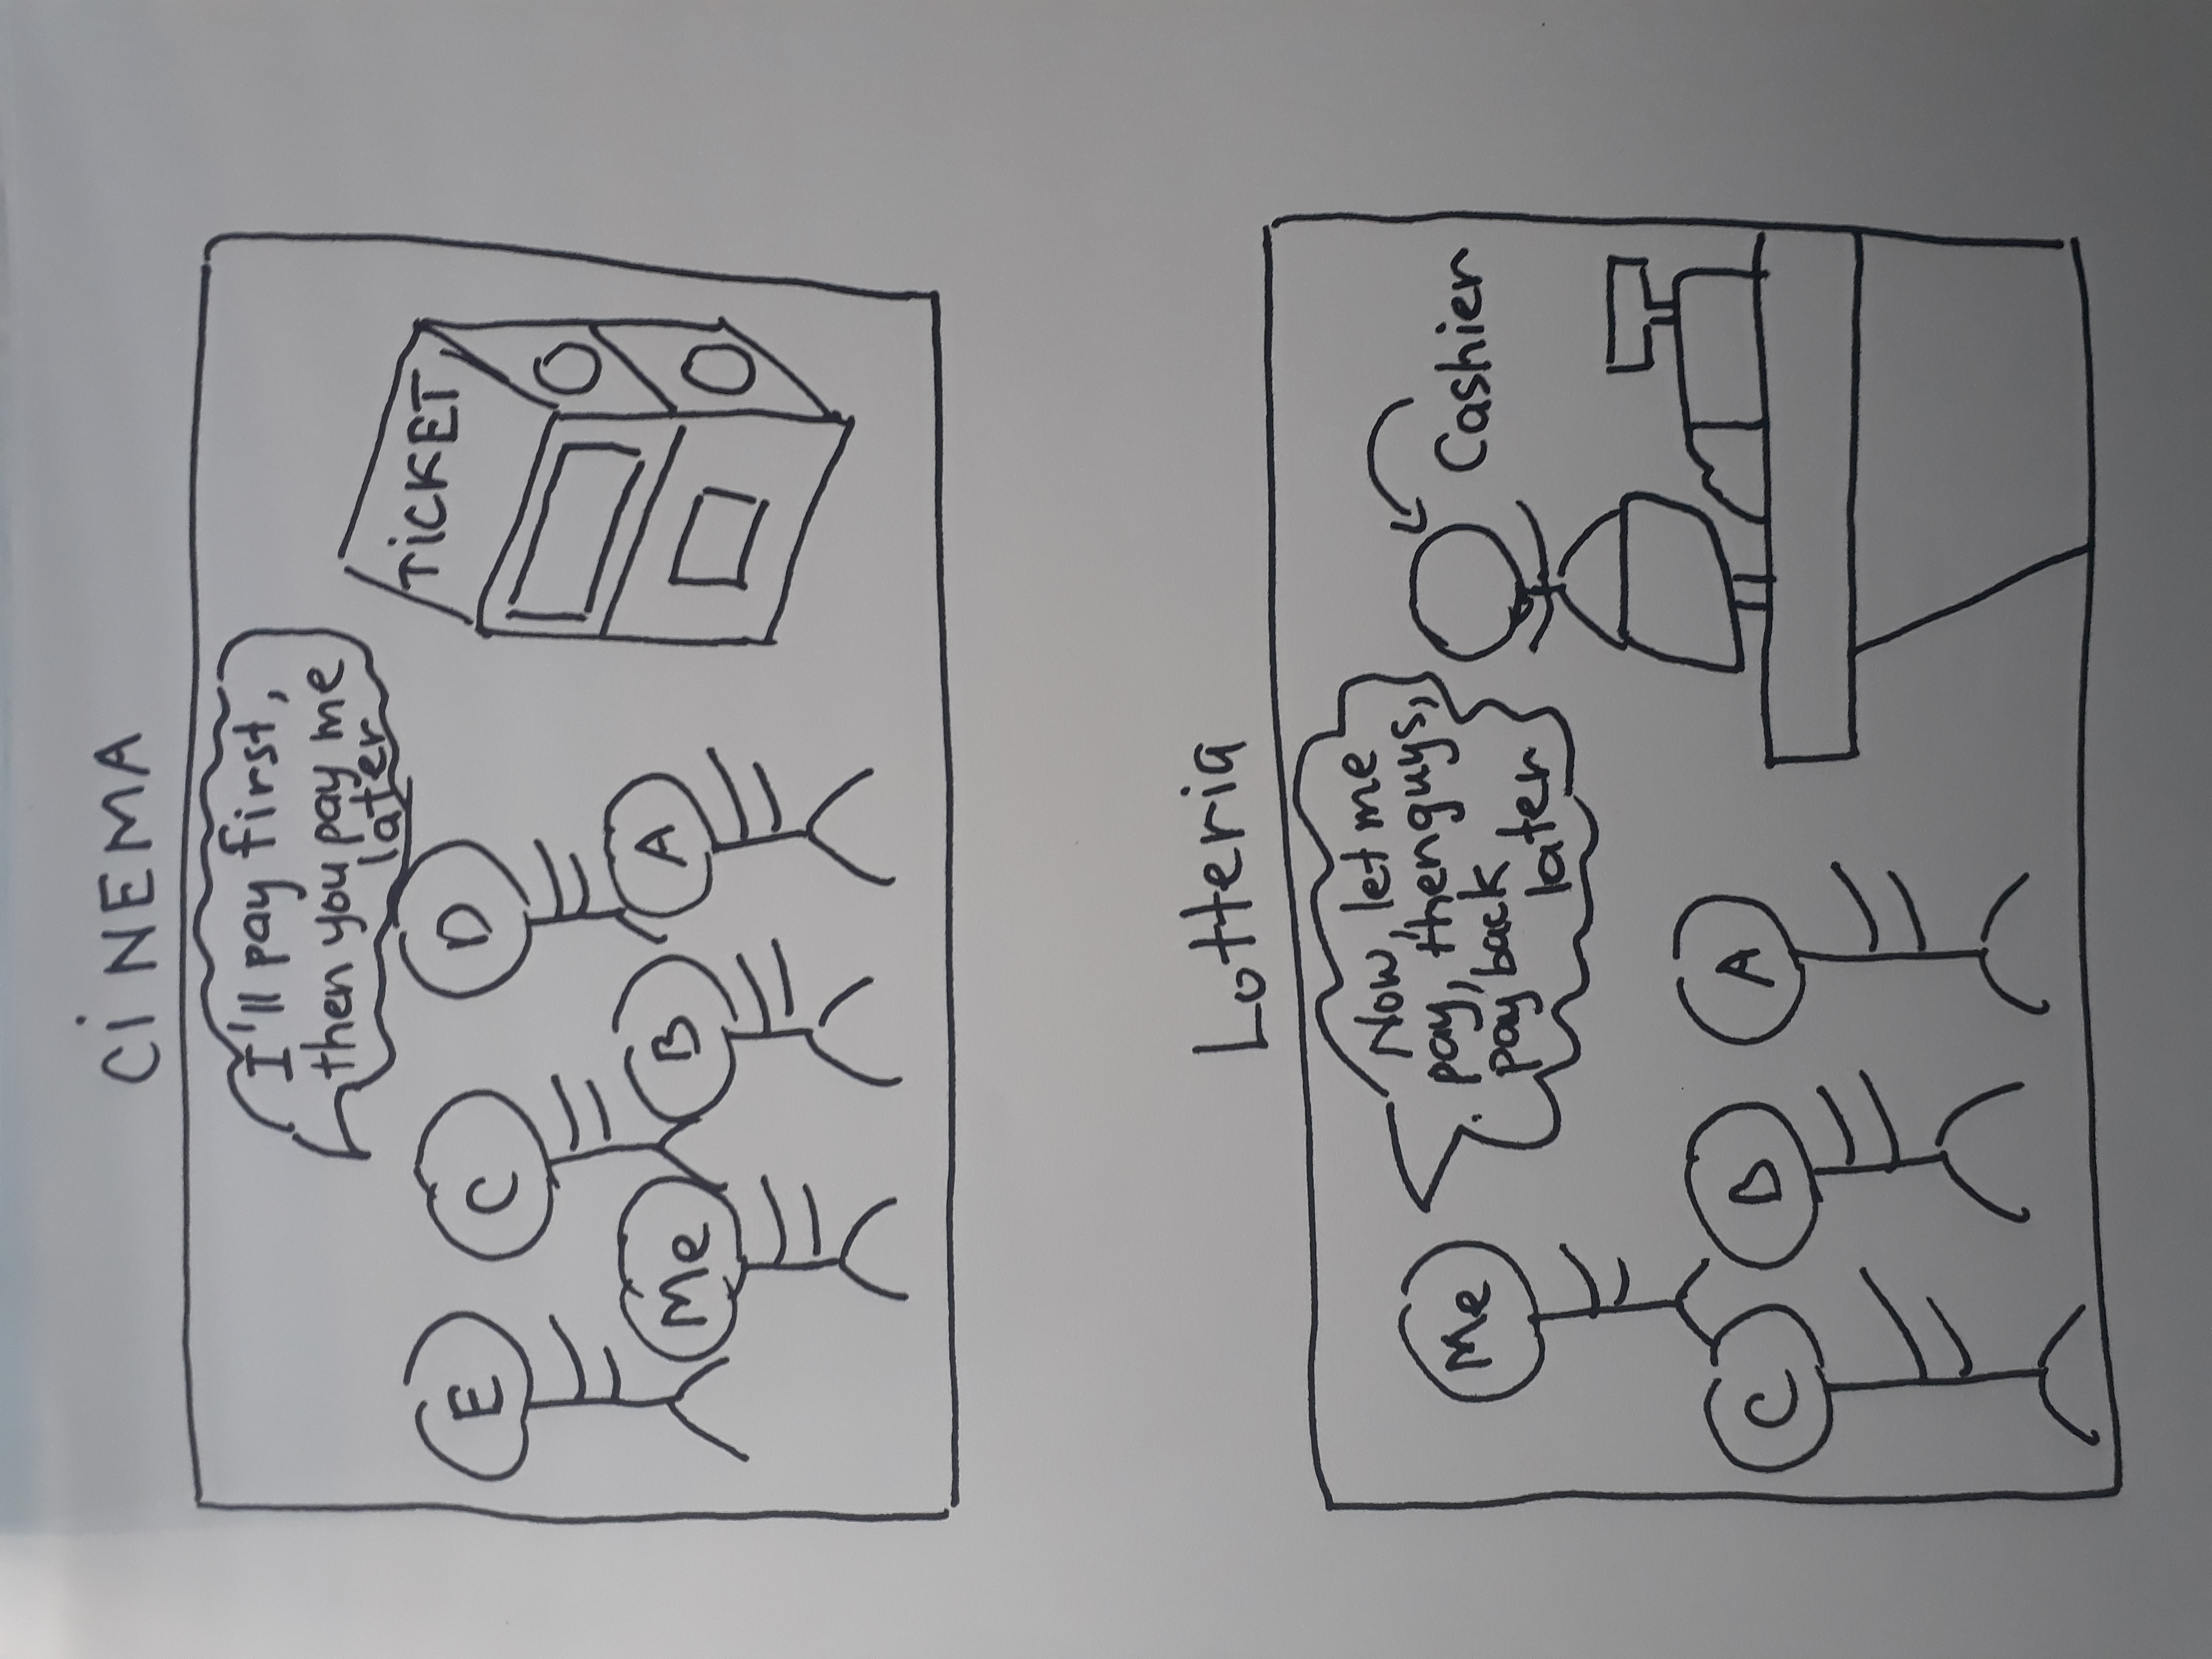 CiNEMA
I'll pay first,
then you pay me
later
TiCKET
E
C
D
Me
B
A
Lotteria
Now, let me
pay, then guys,
pay back
later
Me
Cashier
C
D
A